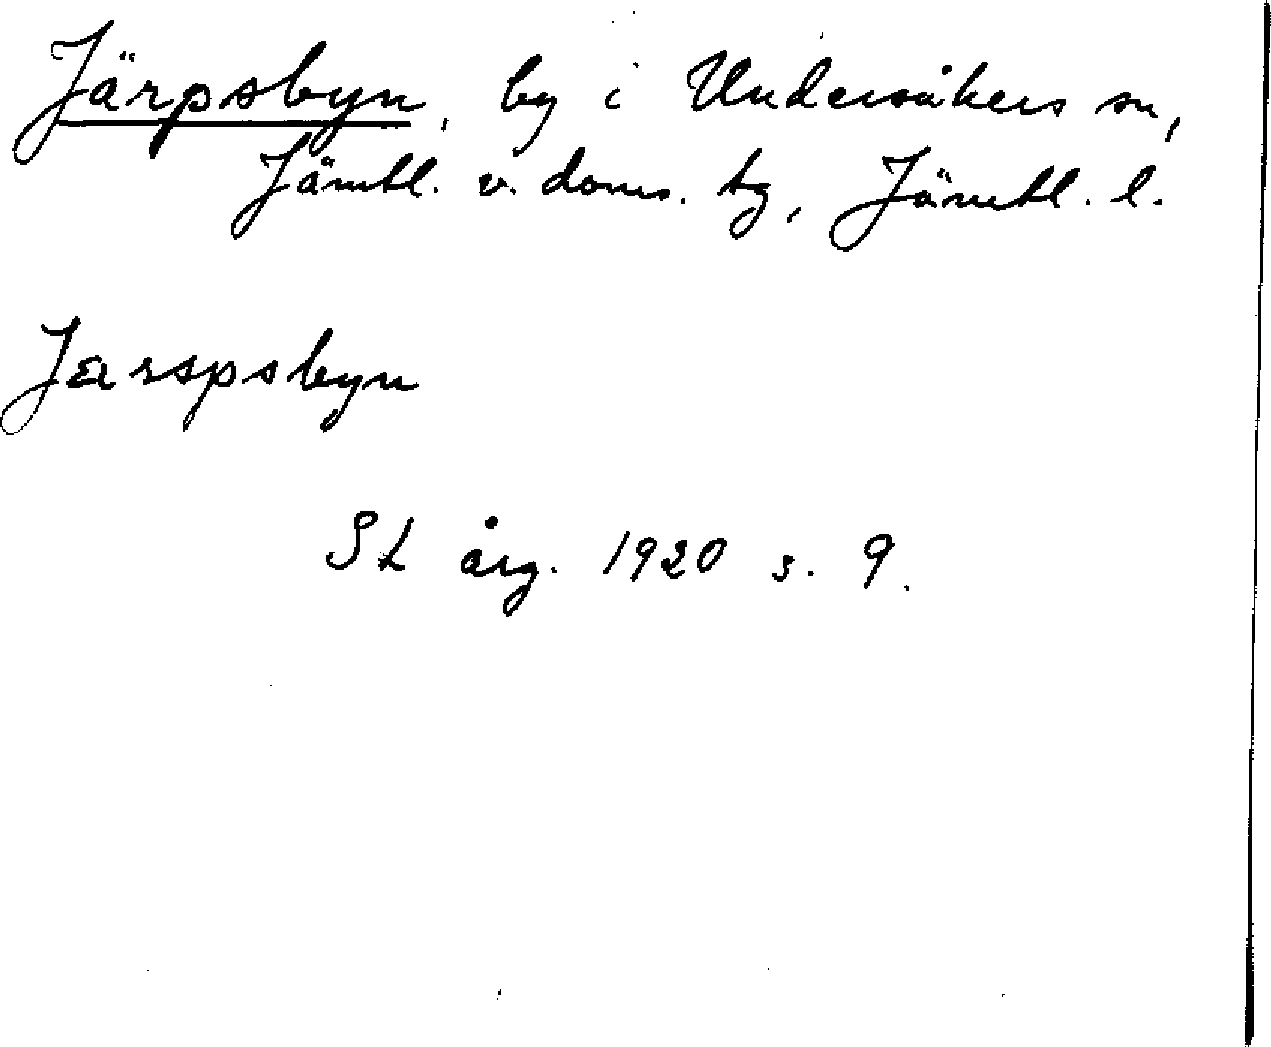 Järpsbyn, by i Undersåkers sn,
Jämtl. v. doms. tg, Jämtl. l.
Jærspsbyn
SL årg. 1920 s. 9.